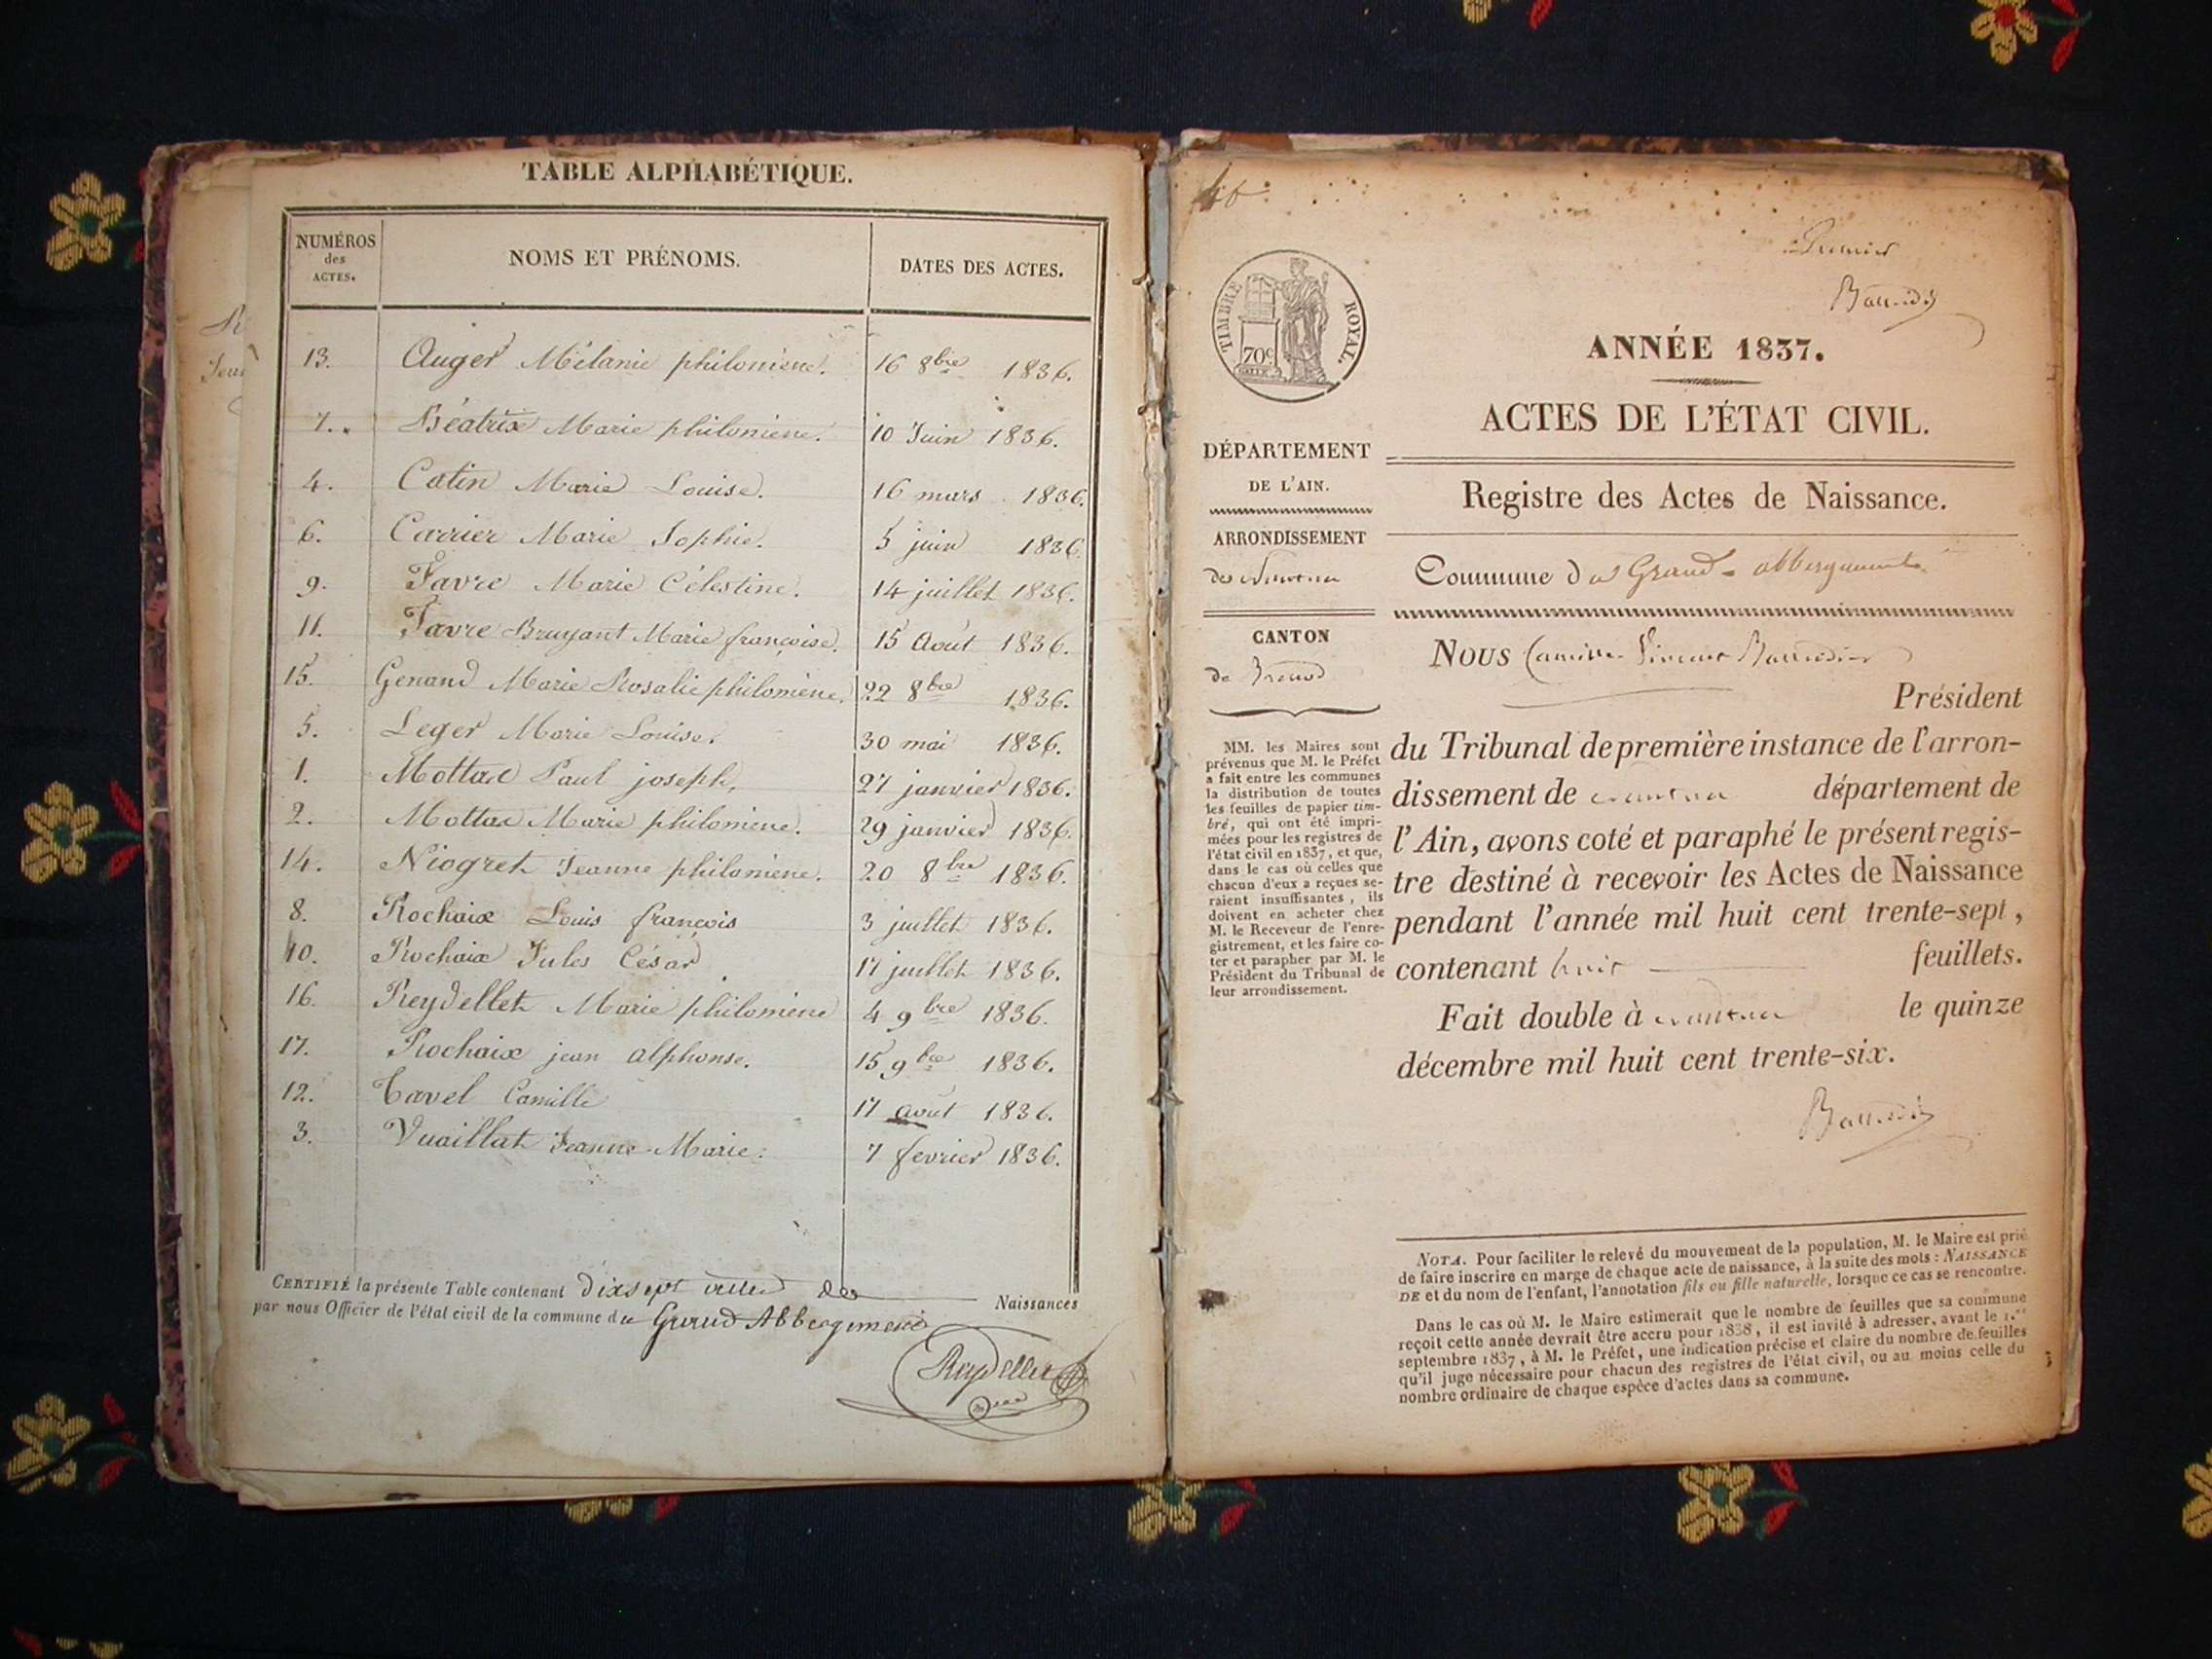 TABLE ALPHABÉTIQUE.
NUMÉROS des ACTES. NOMS ET PRÉNOMS. DATES DES ACTES.
13. Auger Mélanie philomène. 16 8bre 1836.
7. Béatrix Marie philomène. 10 Juin 1836.
4. Catin Marie Louise. 16 mars 1836.
6. Carrier Marie Sophie. 5 juin 1836.
9. Favre Marie Célestine. 14 juillet 1836.
11. Favre Bruyant Marie françoise. 15 Août 1836.
15. Genand Marie Rosalie philomène. 22 8bre 1836.
5. Leger Marie Louise. 30 mai 1836.
1. Mottax Paul joseph, 27 janvier 1836.
2. Mottax Marie philomène. 29 janvier 1836.
14. Niogret Jeanne philomène. 20 8bre 1836.
8. Rochaix Louis françois 3 juillet 1836.
10. Rochaix Jules César 17 juillet 1836.
16. Reydellet Marie philomène 4 9bre 1836.
17. Rochaix jean alphonse. 15 9bre 1836.
12. Tavel Camille 17 août 1836.
3. Vuaillat Jeanne-Marie. 7 fevrier 1836.
CERTIFIÉ la présente Table contenant dixsept actes de Naissances
par nous Officier de l'état civil de la commune du Grand Abbergement
Reydellet
TIMBRE ROYAL.
70c
Premier
ANNÉE 1837.
ACTES DE L'ÉTAT CIVIL.
Registre des Actes de Naissance.
DÉPARTEMENT
DE L'AIN.
ARRONDISSEMENT
de Nantua
CANTON
de Brenod
MM. les Maires sont
prévenus que M. le Préfet
a fait entre les communes
la distribution de toutes
les feuilles de papier tim-
bré, qui ont été impri-
mées pour les registres de
l'état civil en 1837, et que,
dans le cas où celles que
chacun d'eux a reçues se-
raient insuffisantes, ils
doivent en acheter chez
M. le Receveur de l'enre-
gistrement, et les faire co-
ter et parapher par M. le
Président du Tribunal de
leur arrondissement.
Commune du Grand-abbergement
NOUS Camille
Président
du Tribunal de première instance de l'arron-
dissement de Nantua département de
l'Ain, avons coté et paraphé le présent regis-
tre destiné à recevoir les Actes de Naissance
pendant l'année mil huit cent trente-sept,
contenant huit feuillets.
Fait double à Nantua le quinze
décembre mil huit cent trente-six.
NOTA. Pour faciliter le relevé du mouvement de la population, M. le Maire est prié
de faire inscrire en marge de chaque acte de naissance, à la suite des mots : NAISSANCE
DE et du nom de l'enfant, l'annotation fils ou fille naturelle, lorsque ce cas se rencontre.
Dans le cas où M. le Maire estimerait que le nombre de feuilles que sa commune
reçoit cette année devrait être accru pour 1838, il est invité à adresser, avant le 1.er
septembre 1837, à M. le Préfet, une indication précise et claire du nombre de feuilles
qu'il juge nécessaire pour chacun des registres de l'état civil, ou au moins celle du
nombre ordinaire de chaque espèce d'actes dans sa commune.